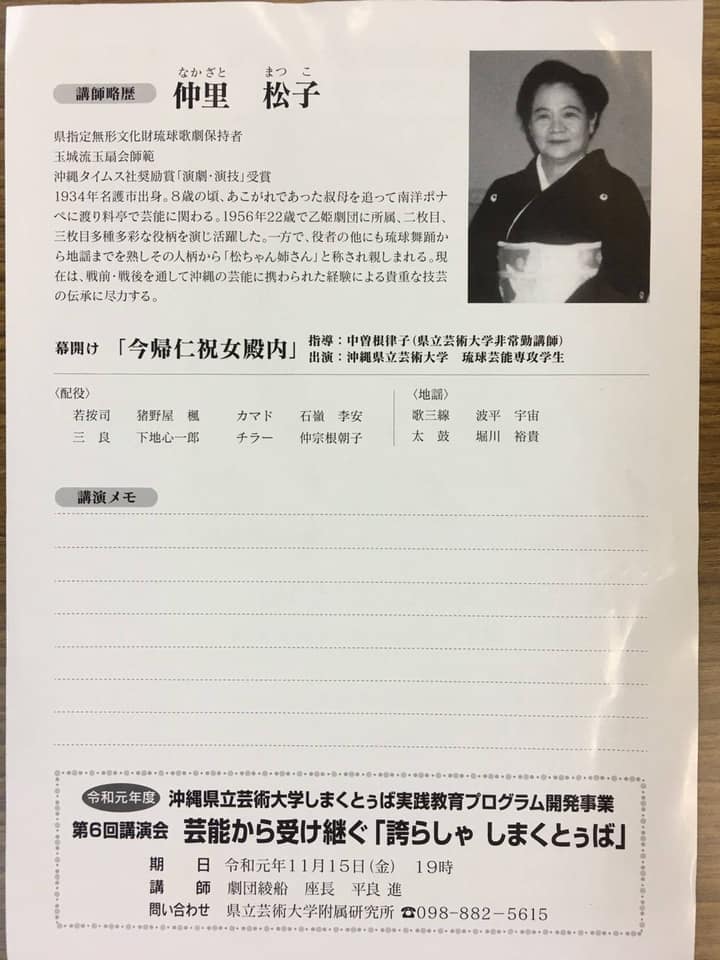 講師略歴
なかざと まつこ
仲里 松子
県指定無形文化財琉球歌劇保持者
玉城流玉扇会師範
沖縄タイムス社奨励賞「演劇・演技」受賞
1934年名護市出身。8歳の頃、あこがれであった叔母を追って南洋ポナ
ペに渡り料亭で芸能に関わる。1956年22歳で乙姫劇団に所属、二枚目、
三枚目多種多彩な役柄を演じ活躍した。一方で、役者の他にも琉球舞踊か
ら地謡までを熟しその人柄から「松ちゃん姉さん」と称され親しまれる。現
在は、戦前・戦後を通して沖縄の芸能に携わられた経験による貴重な技芸
の伝承に尽力する。
幕開け 「今帰仁祝女殿内」
指導：中曽根律子(県立芸術大学非常勤講師)
出演：沖縄県立芸術大学 琉球芸能専攻学生
〈配役〉
若按司 猪野屋 楓 カマド 石嶺 李安
三良 下地心一郎 チラー 仲宗根朝子
〈地謡〉
歌三線 波平 宇宙
太鼓 堀川 裕貴
講演メモ
令和元年度 沖縄県立芸術大学しまくとぅば実践教育プログラム開発事業
第6回講演会 芸能から受け継ぐ「誇らしゃ しまくとぅば」
期日 令和元年11月15日(金) 19時
講師 劇団綾船 座長 平良 進
問い合わせ 県立芸術大学附属研究所 ☎098-882-5615